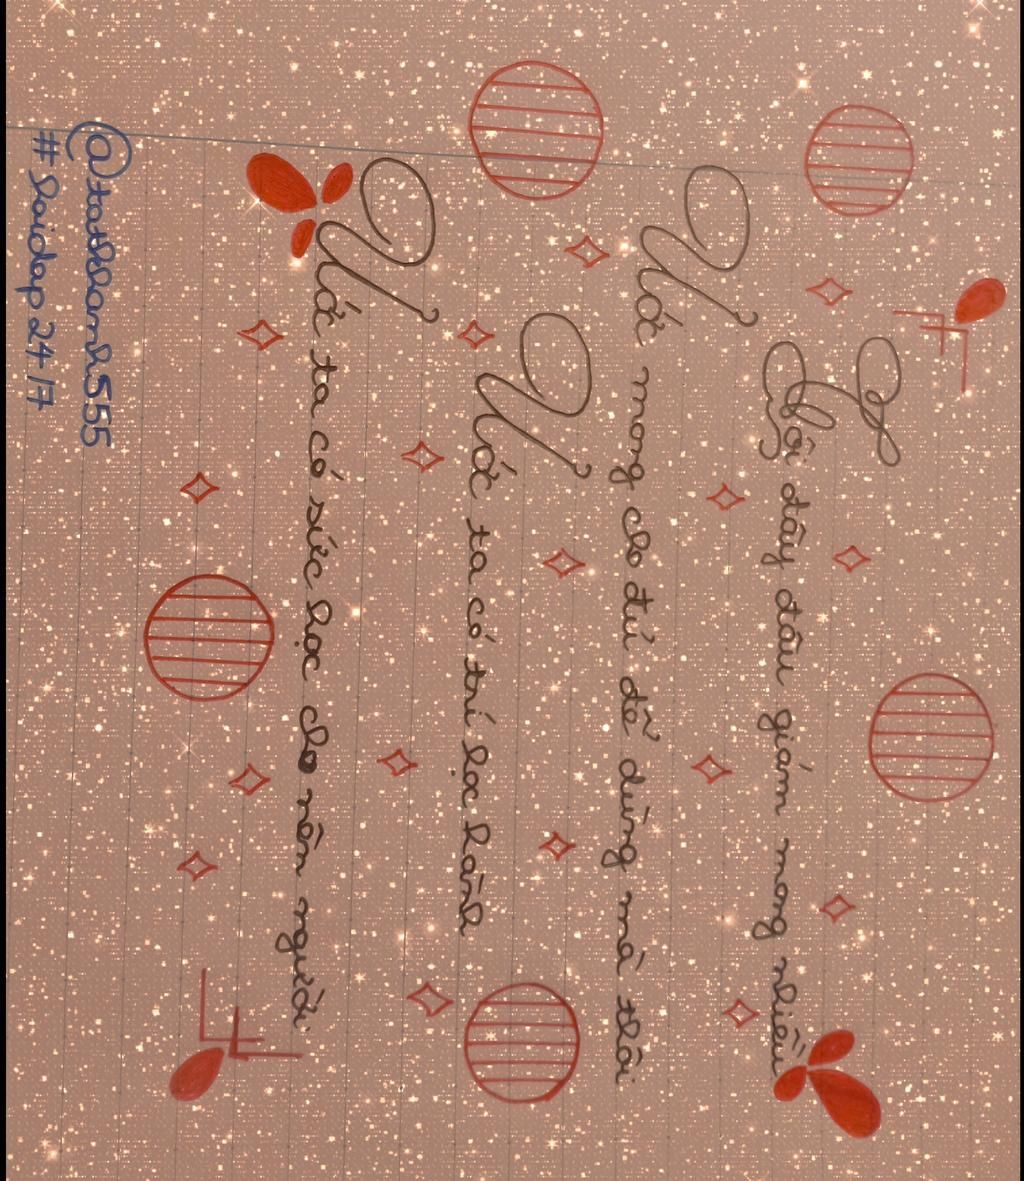 Tôi đây đâu giám mong nhiều
Ước mong cho đủ để dùng mà thôi
Ước ta có trí học hành
Ước ta có sức học cho nên người
@tatkhanh555
# loidap24/7